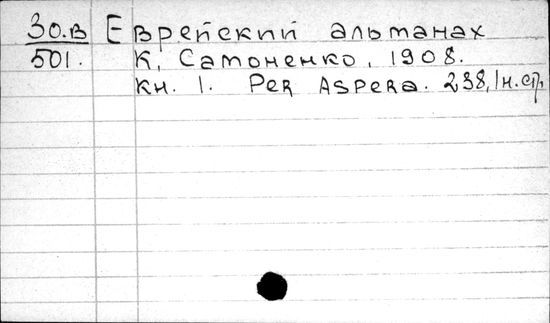 30.в Еврейский альманах
501. К, Самоненко, 1908.
кн. 1. Per Aspera. 238, 1 н. стр.